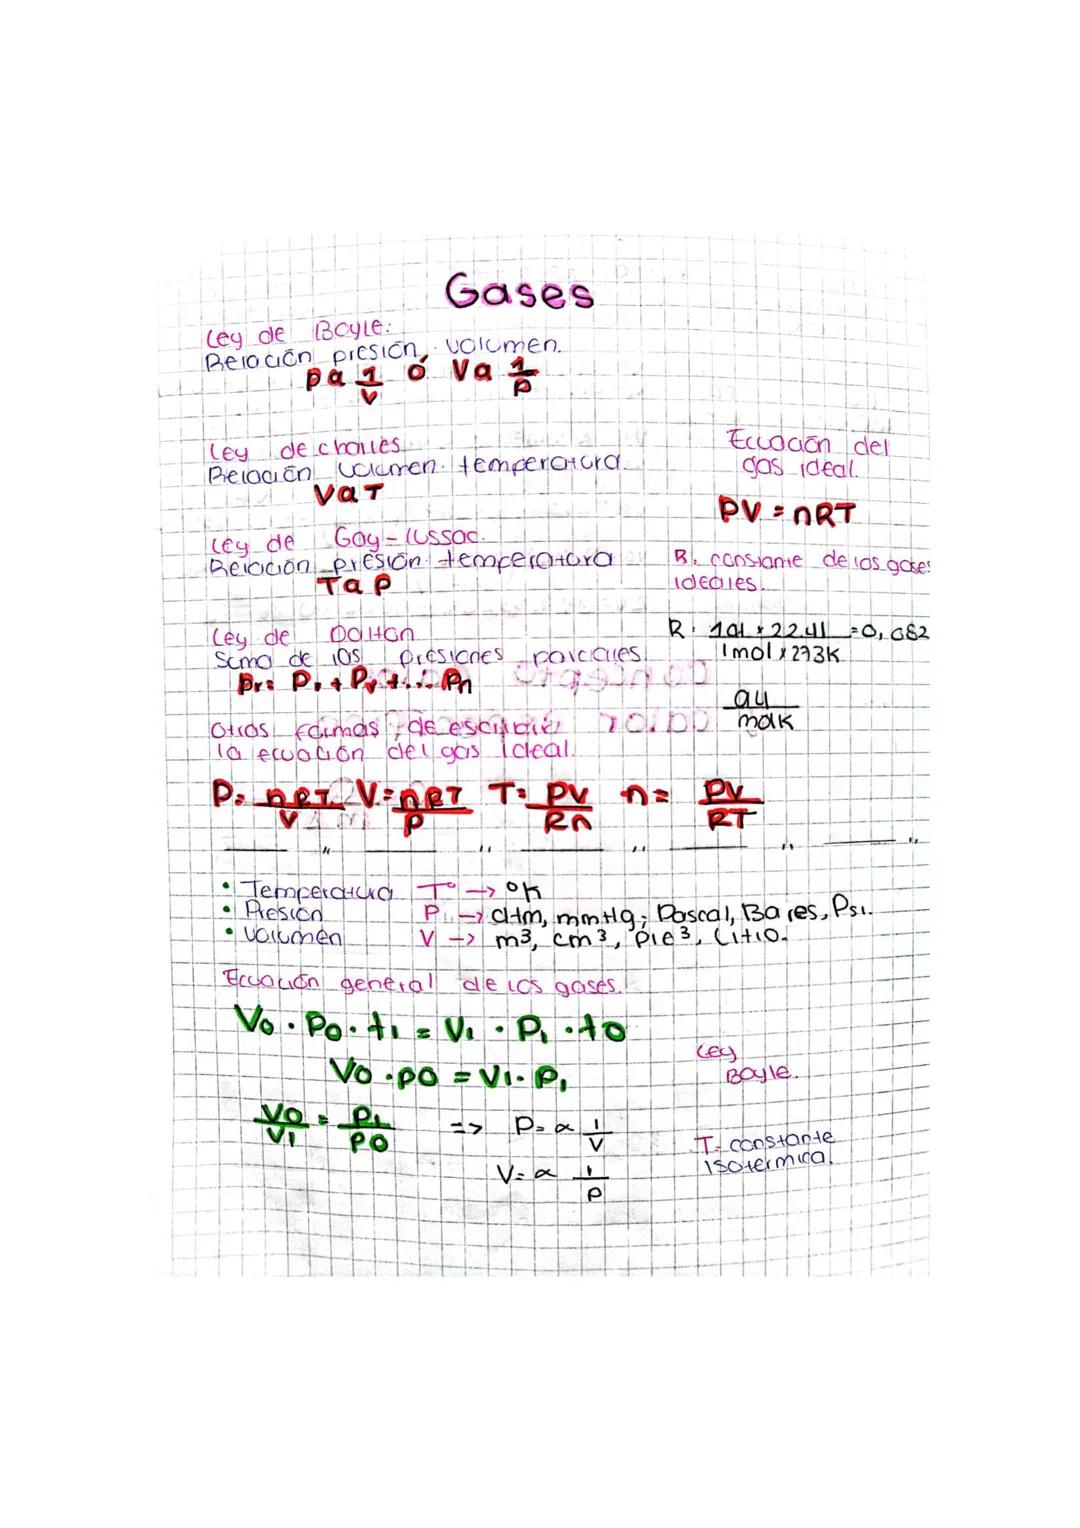 Gases
Ley de Boyle:
Relación presión, volumen.
p α 1/V ó V α 1/P
Ley de charles
Relación volumen temperatura.
V α T
Ley de Gay-lussac.
Relación presión temperatura
T α P
Ley de Dalton
Suma de los presiones parciales.
Otras formas de escribir
la ecuación del gas ideal.
P= nRT/V V=nRT/P T= PV/Rn n= PV/RT
Ecuación del
gas ideal.
PV = nRT
R. constante de los gases
ideales.
mol K
• Temperatura T° → °K
• Presión P → atm, mmHg, Pascal, Bares, Psi.
• Volumen V → m³, cm³, pie³, Litio.
Ecuación general de los gases.
Vo . Po . t1 = V1 . P1 . to
Vo . po = V1 . P1
Vo/V1 = P1/Po => P= α 1/V
V= α 1/P
Ley
Boyle.
T- constante
isotermica.